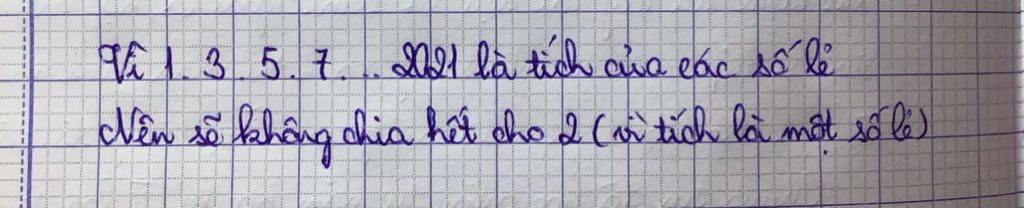 Vì 1. 3. 5. 7. ... 2021 là tích của các số lẻ
Nên số không chia hết cho 2 (vì tích là một số lẻ)